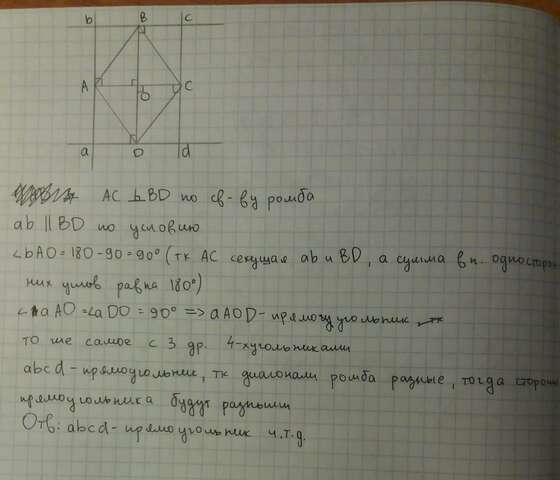 b B c
A O C
a D d
AC ⊥ BD по св-ву ромба
ab || BD по условию
∠bAO = 180 - 90 = 90° (тк AC секущая ab и BD, а сумма вн. односторон
них углов равна 180°)
∠aAO = ∠aDO = 90° => aAOD - прямоугольник
то же самое с 3 др. 4-хугольниками
abcd - прямоугольник, тк диагонали ромба разные, тогда стороны
прямоугольника будут разными
Отв: abcd - прямоугольник ч.т.д.